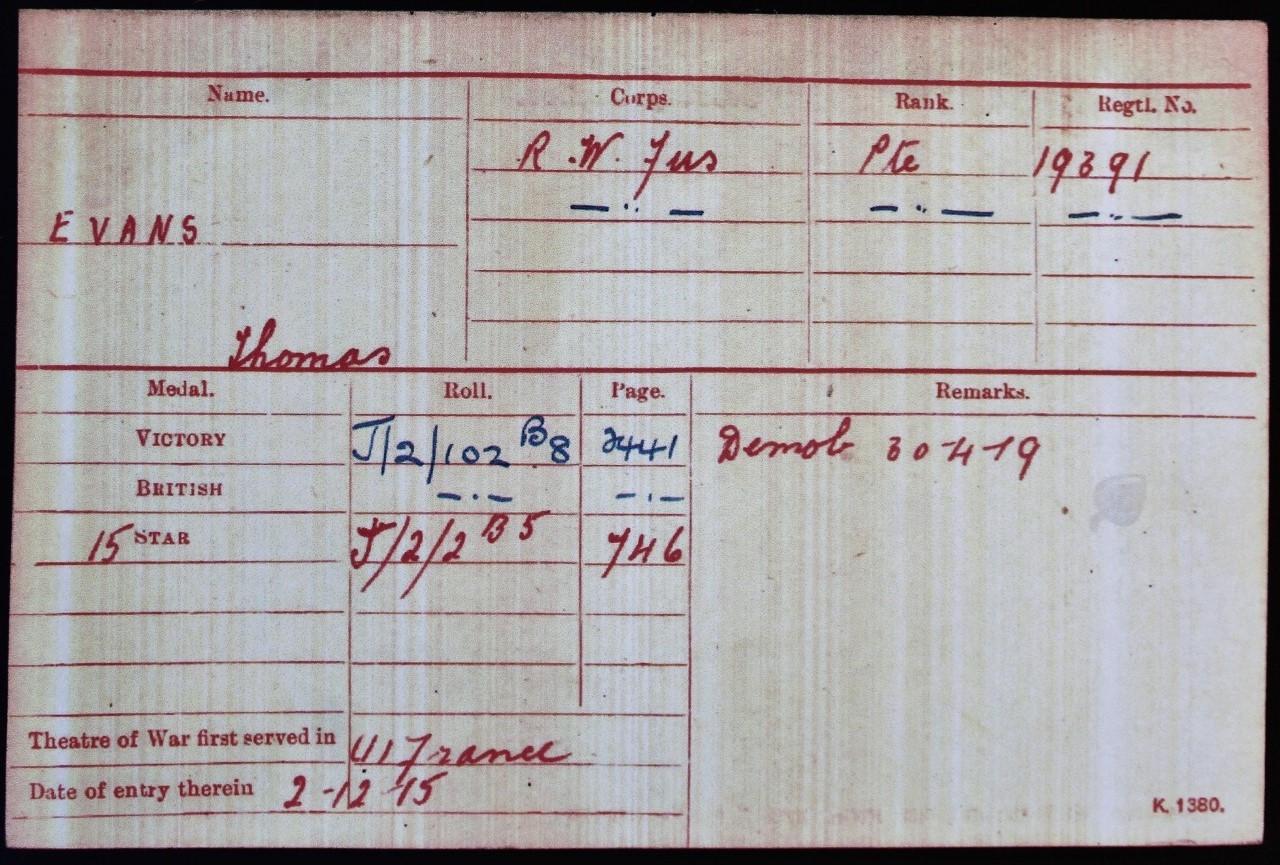 Name. Corps. Rank. Regtl. No.
R.W. Fus Pte 19391
— ,, — — ,, — — ,, —
EVANS
Thomas
Medal. Roll. Page. Remarks.
VICTORY J/2/102 B8 2441 Demob 30-4-19
BRITISH — . — — . —
15 STAR J/2/2 B5 746
Theatre of War first served in (1) France
Date of entry therein 2-12-15
K. 1380.